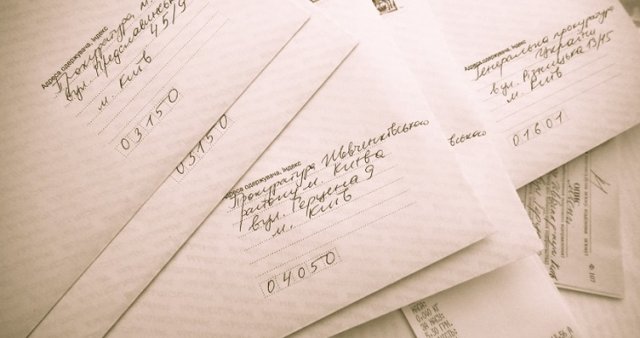 Адреса одержувача, індекс
Прокуратура, м.
вул. Предславинська
45/9
м. Київ
03150
03150
Адреса одержувача, індекс
Прокуратура Шевченківського
району м. Києва
вул. Герцена 9
м. Київ
04050
вського
Адреса одержувача, індекс
Генеральна прокуратура
України
вул. Різницька 13/15
м. Київ
01601
ОПИС
Ф. 107
0.040 КГ
5.30 ГРН.